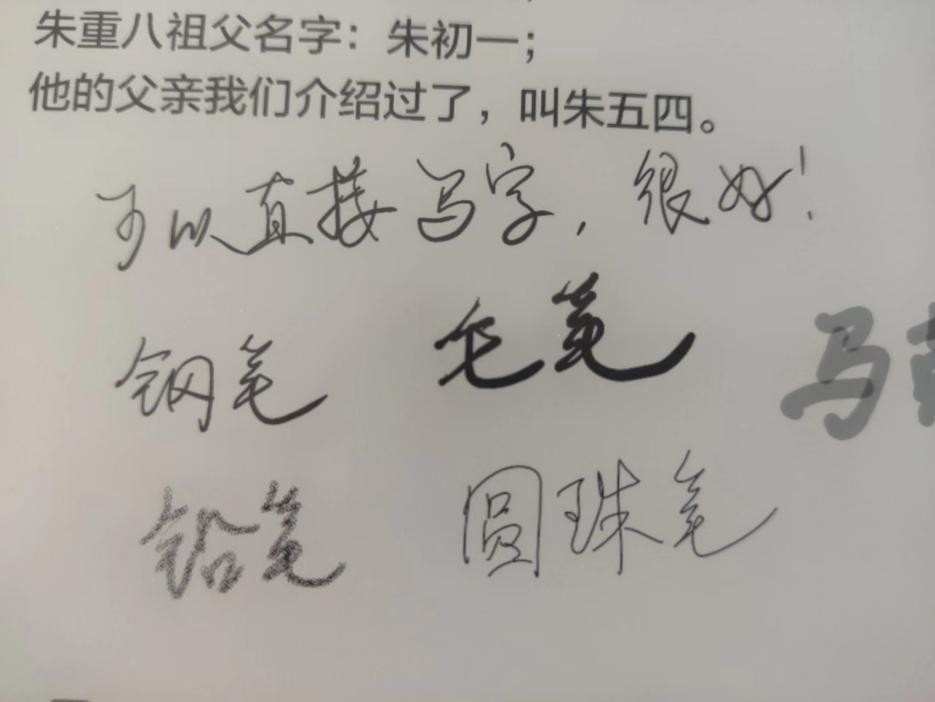 朱重八祖父名字：朱初一；
他的父亲我们介绍过了，叫朱五四。
可以直接写字，很好！
钢笔 毛笔
马
铅笔 圆珠笔